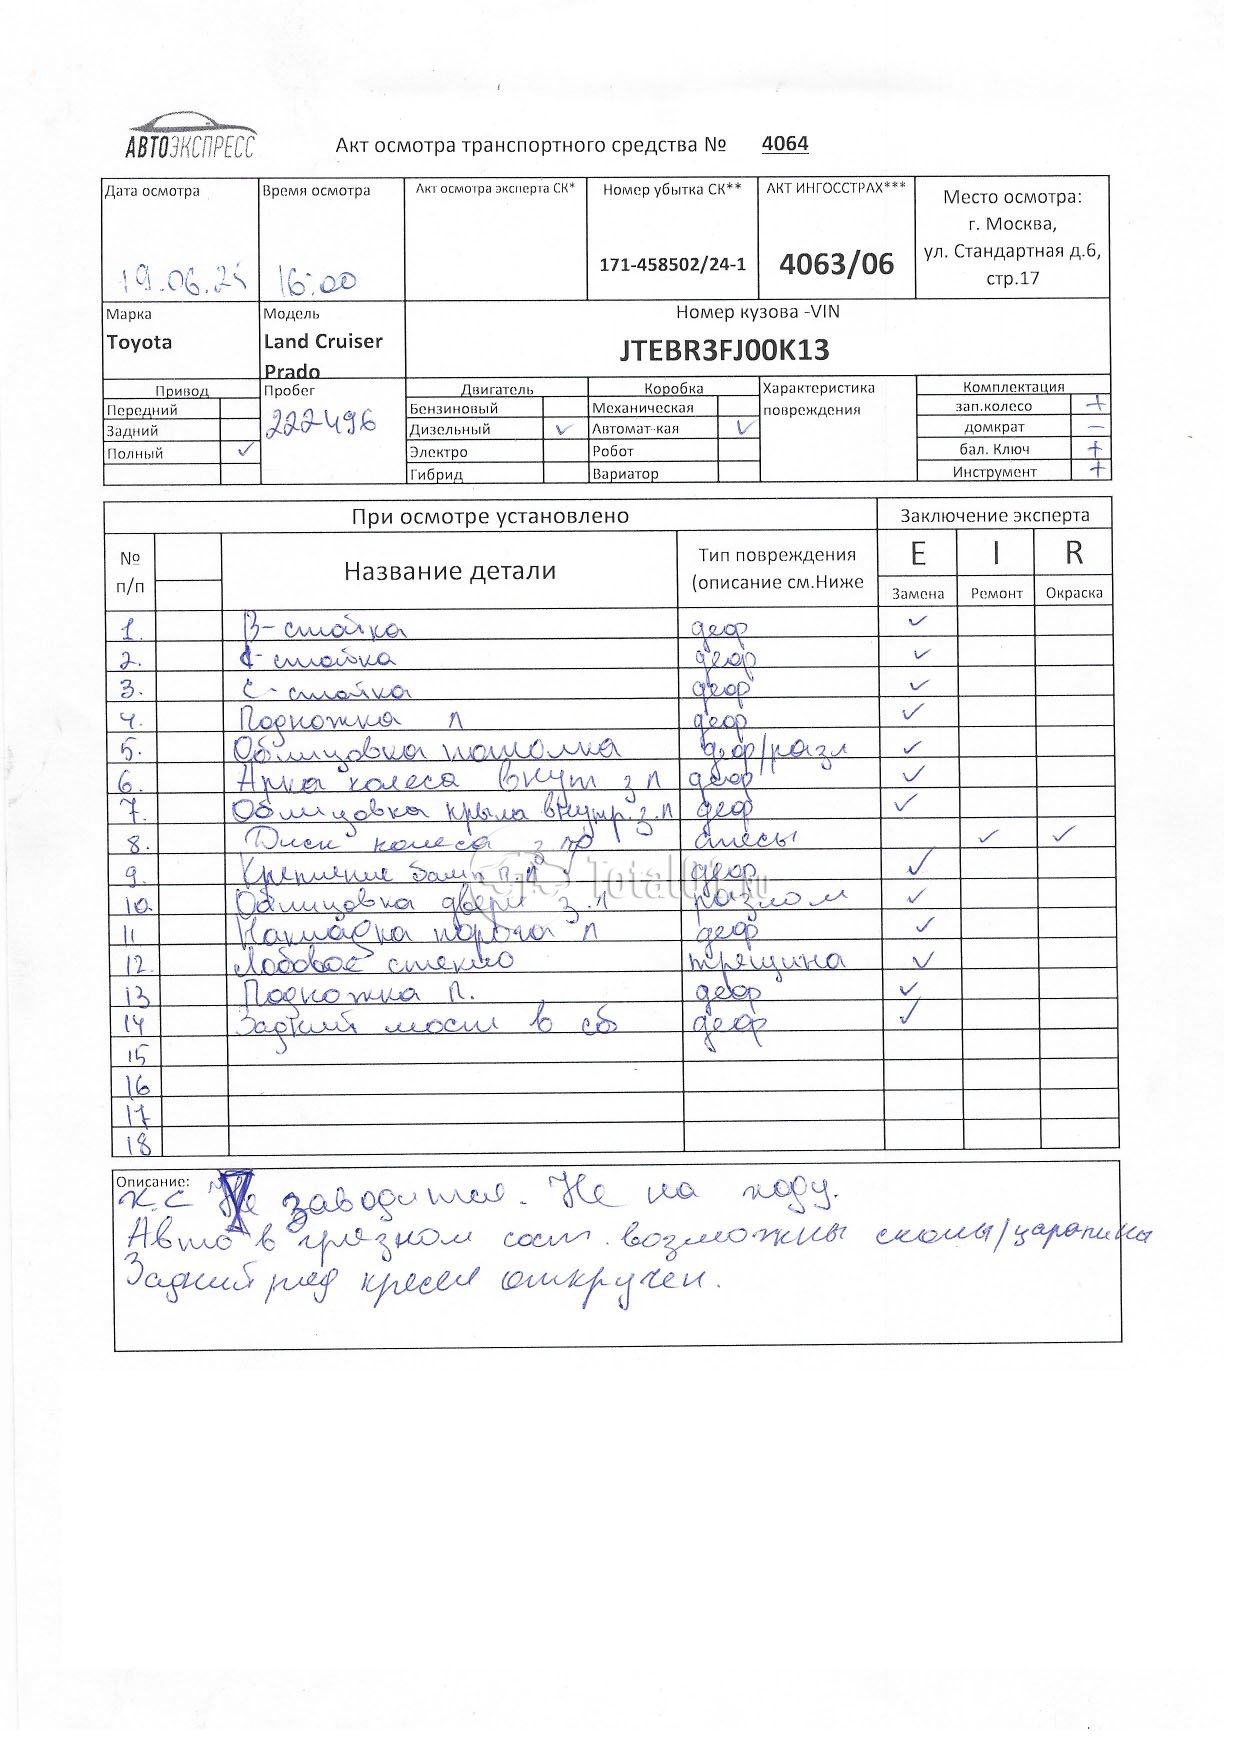 АВТОЭКСПРЕСС
Акт осмотра транспортного средства № 4064
Дата осмотра Время осмотра Акт осмотра эксперта СК* Номер убытка СК** АКТ ИНГОССТРАХ*** Место осмотра:
г. Москва,
ул. Стандартная д.6,
стр.17
19.06.25 16:00 171-458502/24-1 4063/06
Марка Модель Номер кузова -VIN
Toyota Land Cruiser Prado JTEBR3FJ00K13
Привод Пробег Двигатель Коробка Характеристика повреждения Комплектация
222496
Передний Бензиновый Механическая зап.колесо +
Задний Дизельный ✓ Автомат-кая ✓ домкрат –
Полный ✓ Электро Робот бал. Ключ +
Гибрид Вариатор Инструмент +
При осмотре установлено Заключение эксперта
№ п/п Название детали Тип повреждения (описание см.Ниже E I R
Замена Ремонт Окраска
1. В-стойка деф ✓
2. -стойка деф ✓
3. С-стойка деф ✓
4. Подножка л деф ✓
5. Облицовка потолка деф/разл ✓
6. Арка колеса внут з л деф ✓
7. Облицовка крыла внутр. з. л деф ✓
8. Диск колеса з пр спесы ✓ ✓
9. Крепление бамп п.л деф ✓
10. Облицовка двери з.л разлом ✓
11 Накладка порога л деф ✓
12. Лобовое стекло трещина ✓
13 Подножка п. деф ✓
14 Задний мост в сб деф ✓
15
16
17
18
Описание:
Х.С Не заводится. Не на ходу.
Авто в грязном сост. возможны сколы/царапины
Задний ряд кресел откручен.
Total01.ru